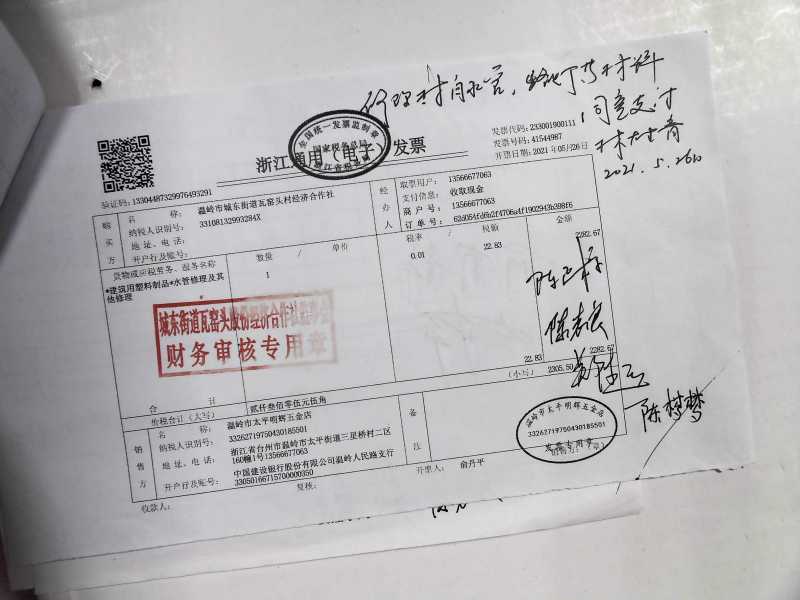 同意支付
2021.5.26
全国统一发票监制章
国家税务总局
浙江省税务局
浙江通用（电子）发票
发票代码：233001900111
发票号码：41544987
开票日期：2021年05月26日
验证码：13304487329976493291
购买方
名称：温岭市城东街道瓦窑头村经济合作社
纳税人识别号：33108132993284X
地址、电话：
开户行及账号：
经办人
取票用户：13566677063
支付信息：收取现金
商户号：13566677063
订单号：62d054fd5b2f4706a4f1902943b398f6
货物或应税劳务、服务名称 数量 / 单价 税率 / 税额 金额
*建筑用塑料制品*水管修理及其他修理 1 0.01 22.83 2282.67
城东街道瓦窑头股份经济合作社监察会
财务审核专用章
陈梦梦
合计 22.83 2282.67
价税合计（大写） 贰仟叁佰零伍元伍角 （小写） 2305.50
销售方
名称：温岭市太平明辉五金店
纳税人识别号：33262719750430185501
地址、电话：浙江省台州市温岭市太平街道三星桥村二区160幢1号13566677063
开户行及账号：中国建设银行股份有限公司温岭人民路支行33050166715700000350
备注
温岭市太平明辉五金店
33262719750430185501
发票专用章
销售方：（章）
收款人：
复核：
开票人：俞丹平